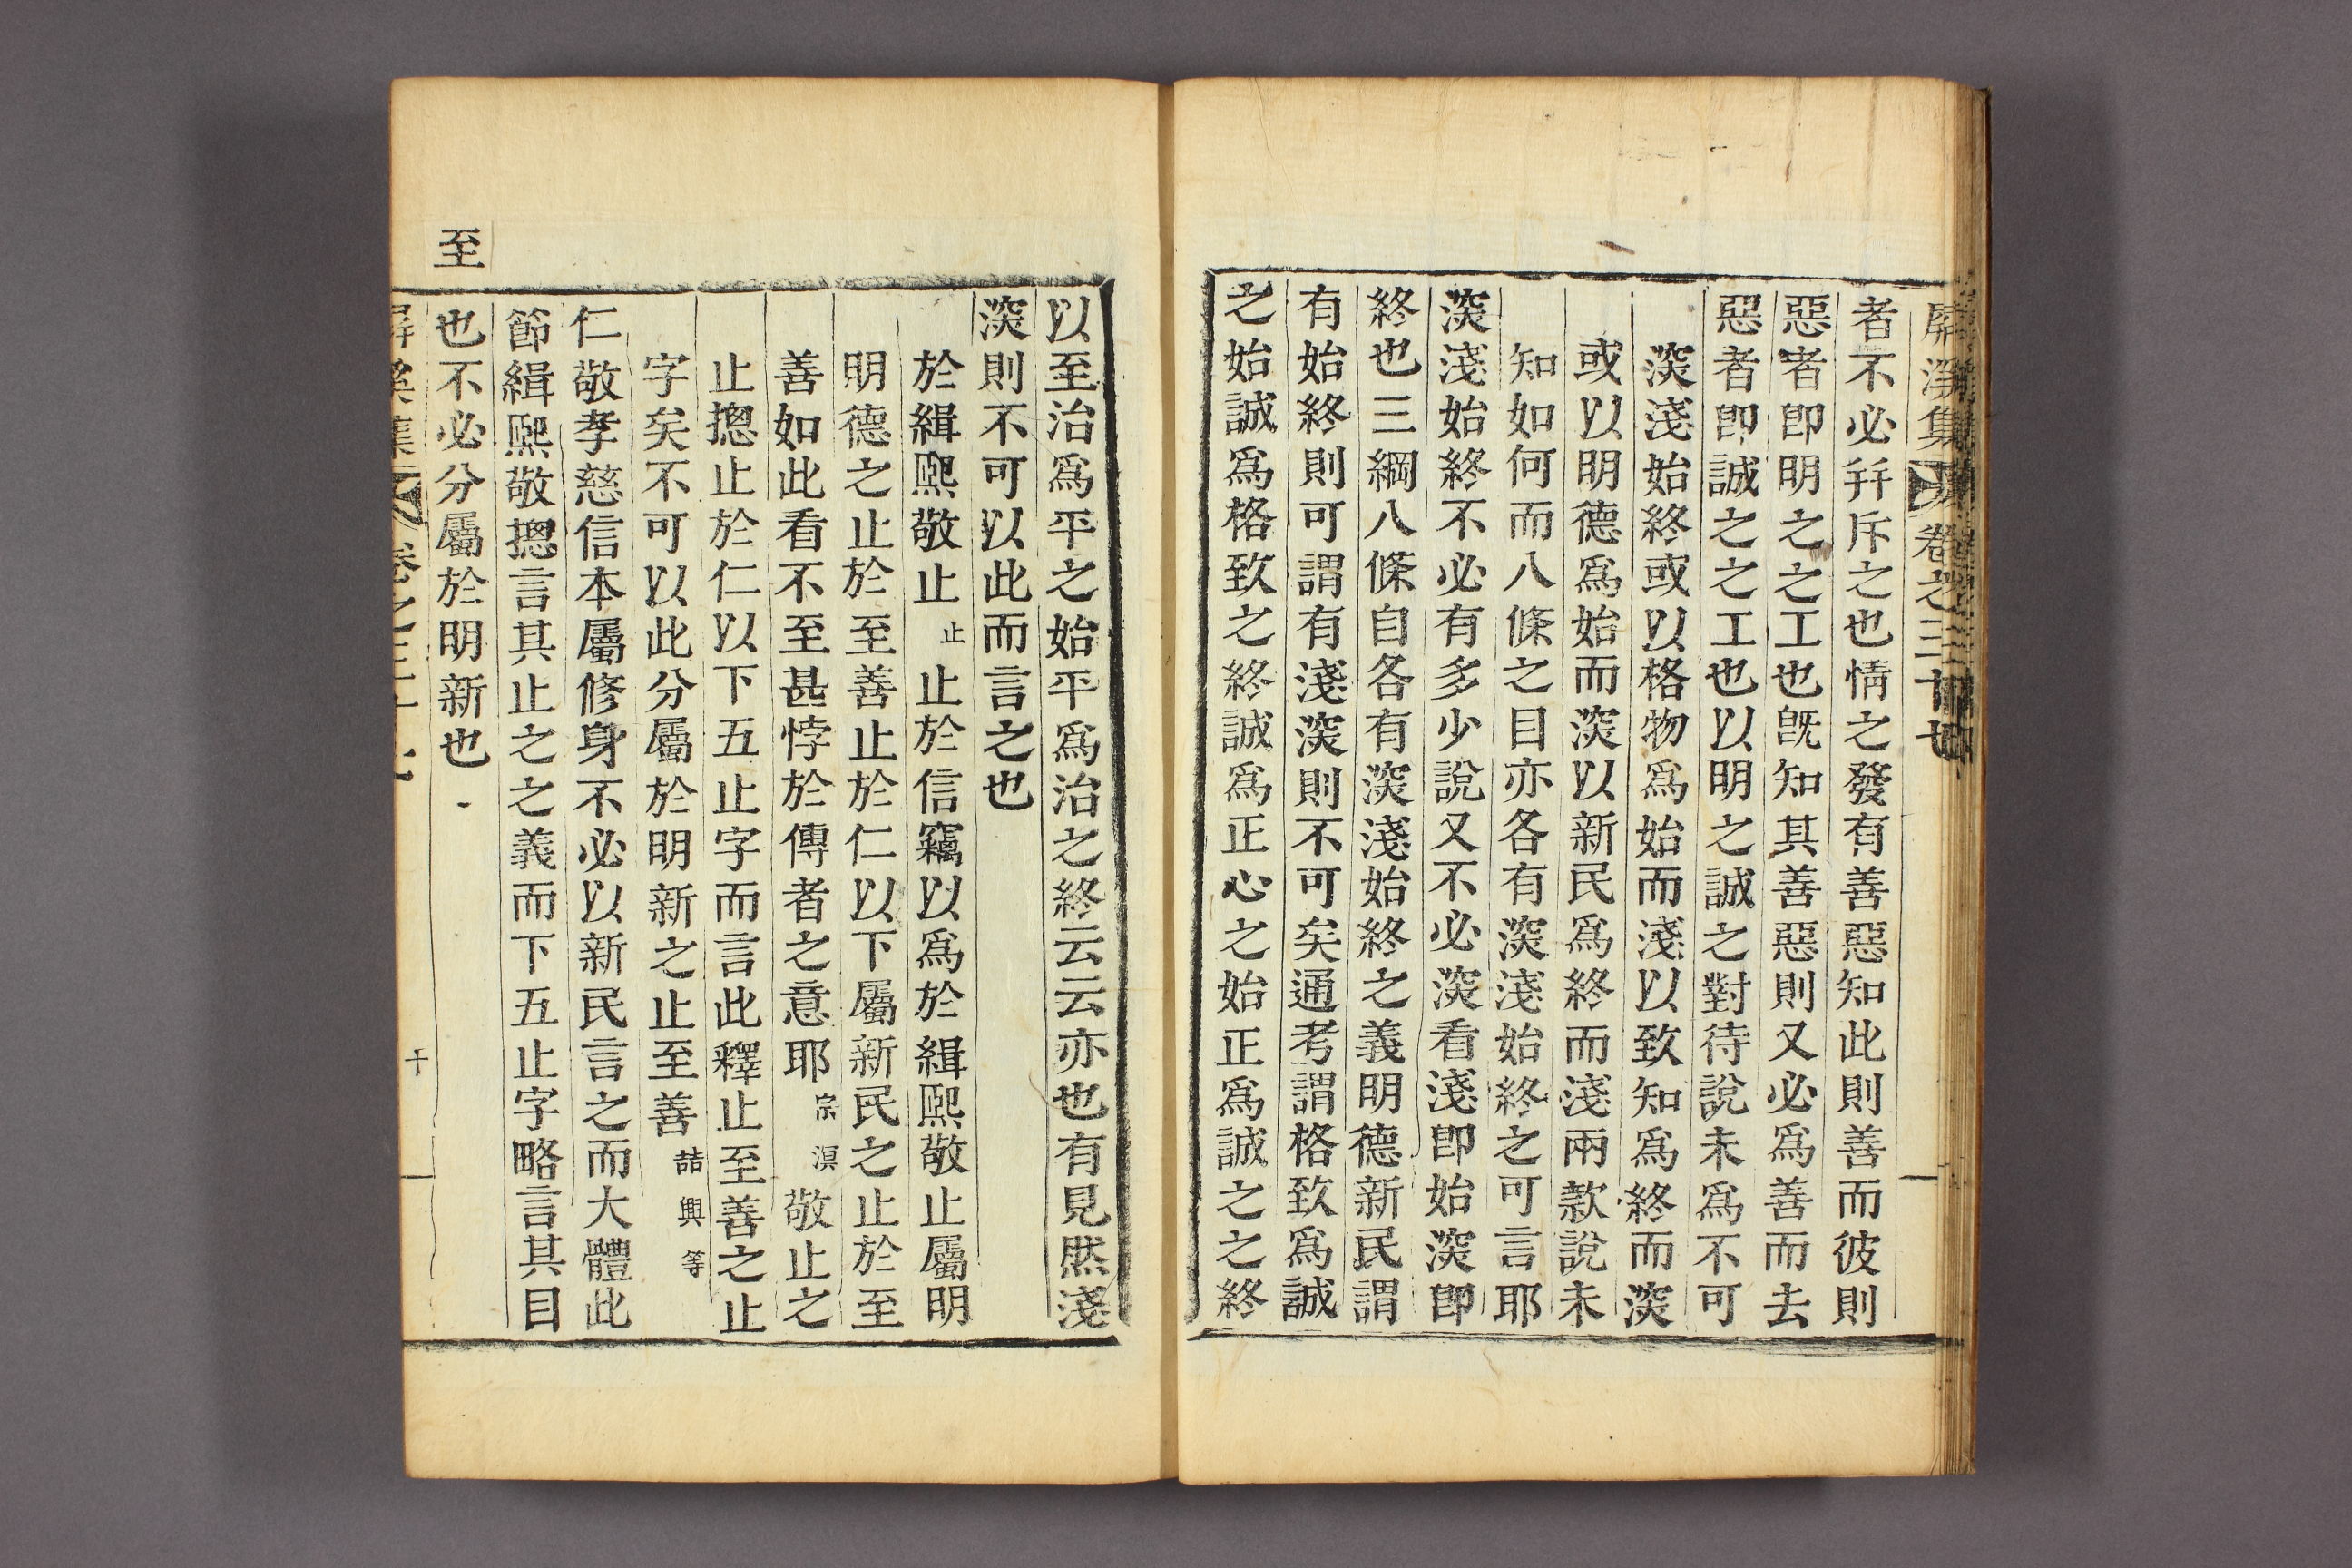 屛溪集 卷之三十七
者不必幷斥之也情之發有善惡知此則善而彼則
惡者卽明之之工也旣知其善惡則又必爲善而去
惡者卽誠之之工也以明之誠之對待說未爲不可
淡淺始終或以格物爲始而淺以致知爲終而淡
或以明德爲始而淡以新民爲終而淺兩款說未
知如何而八條之目亦各有淡淺始終之可言耶
淡淺始終不必有多少說又不必淡看淺卽始淡卽
終也三綱八條自各有淡淺始終之義明德新民謂
有始終則可謂有淺淡則不可矣通考謂格致爲誠
之始誠爲格致之終誠爲正心之始正爲誠之之終
以至治爲平之始平爲治之終云云亦也有見然淺
淡則不可以此而言之也
於緝熙敬止 止 止於信竊以爲於緝熙敬止屬明
明德之止於至善止於仁以下屬新民之止於至
善如此看不至甚悖於傳者之意耶 宗溟 敬止之
止摠止於仁以下五止字而言此釋止至善之止
字矣不可以此分屬於明新之止至善 喆興等
仁敬孝慈信本屬修身不必以新民言之而大體此
節緝熙敬摠言其止之之義而下五止字略言其目
也不必分屬於明新也
至
屛溪集 卷之三十七
十